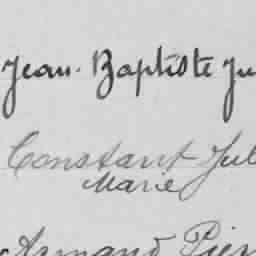 Jean-Baptiste Ju
Constant Jul
Marie
Armand Pier